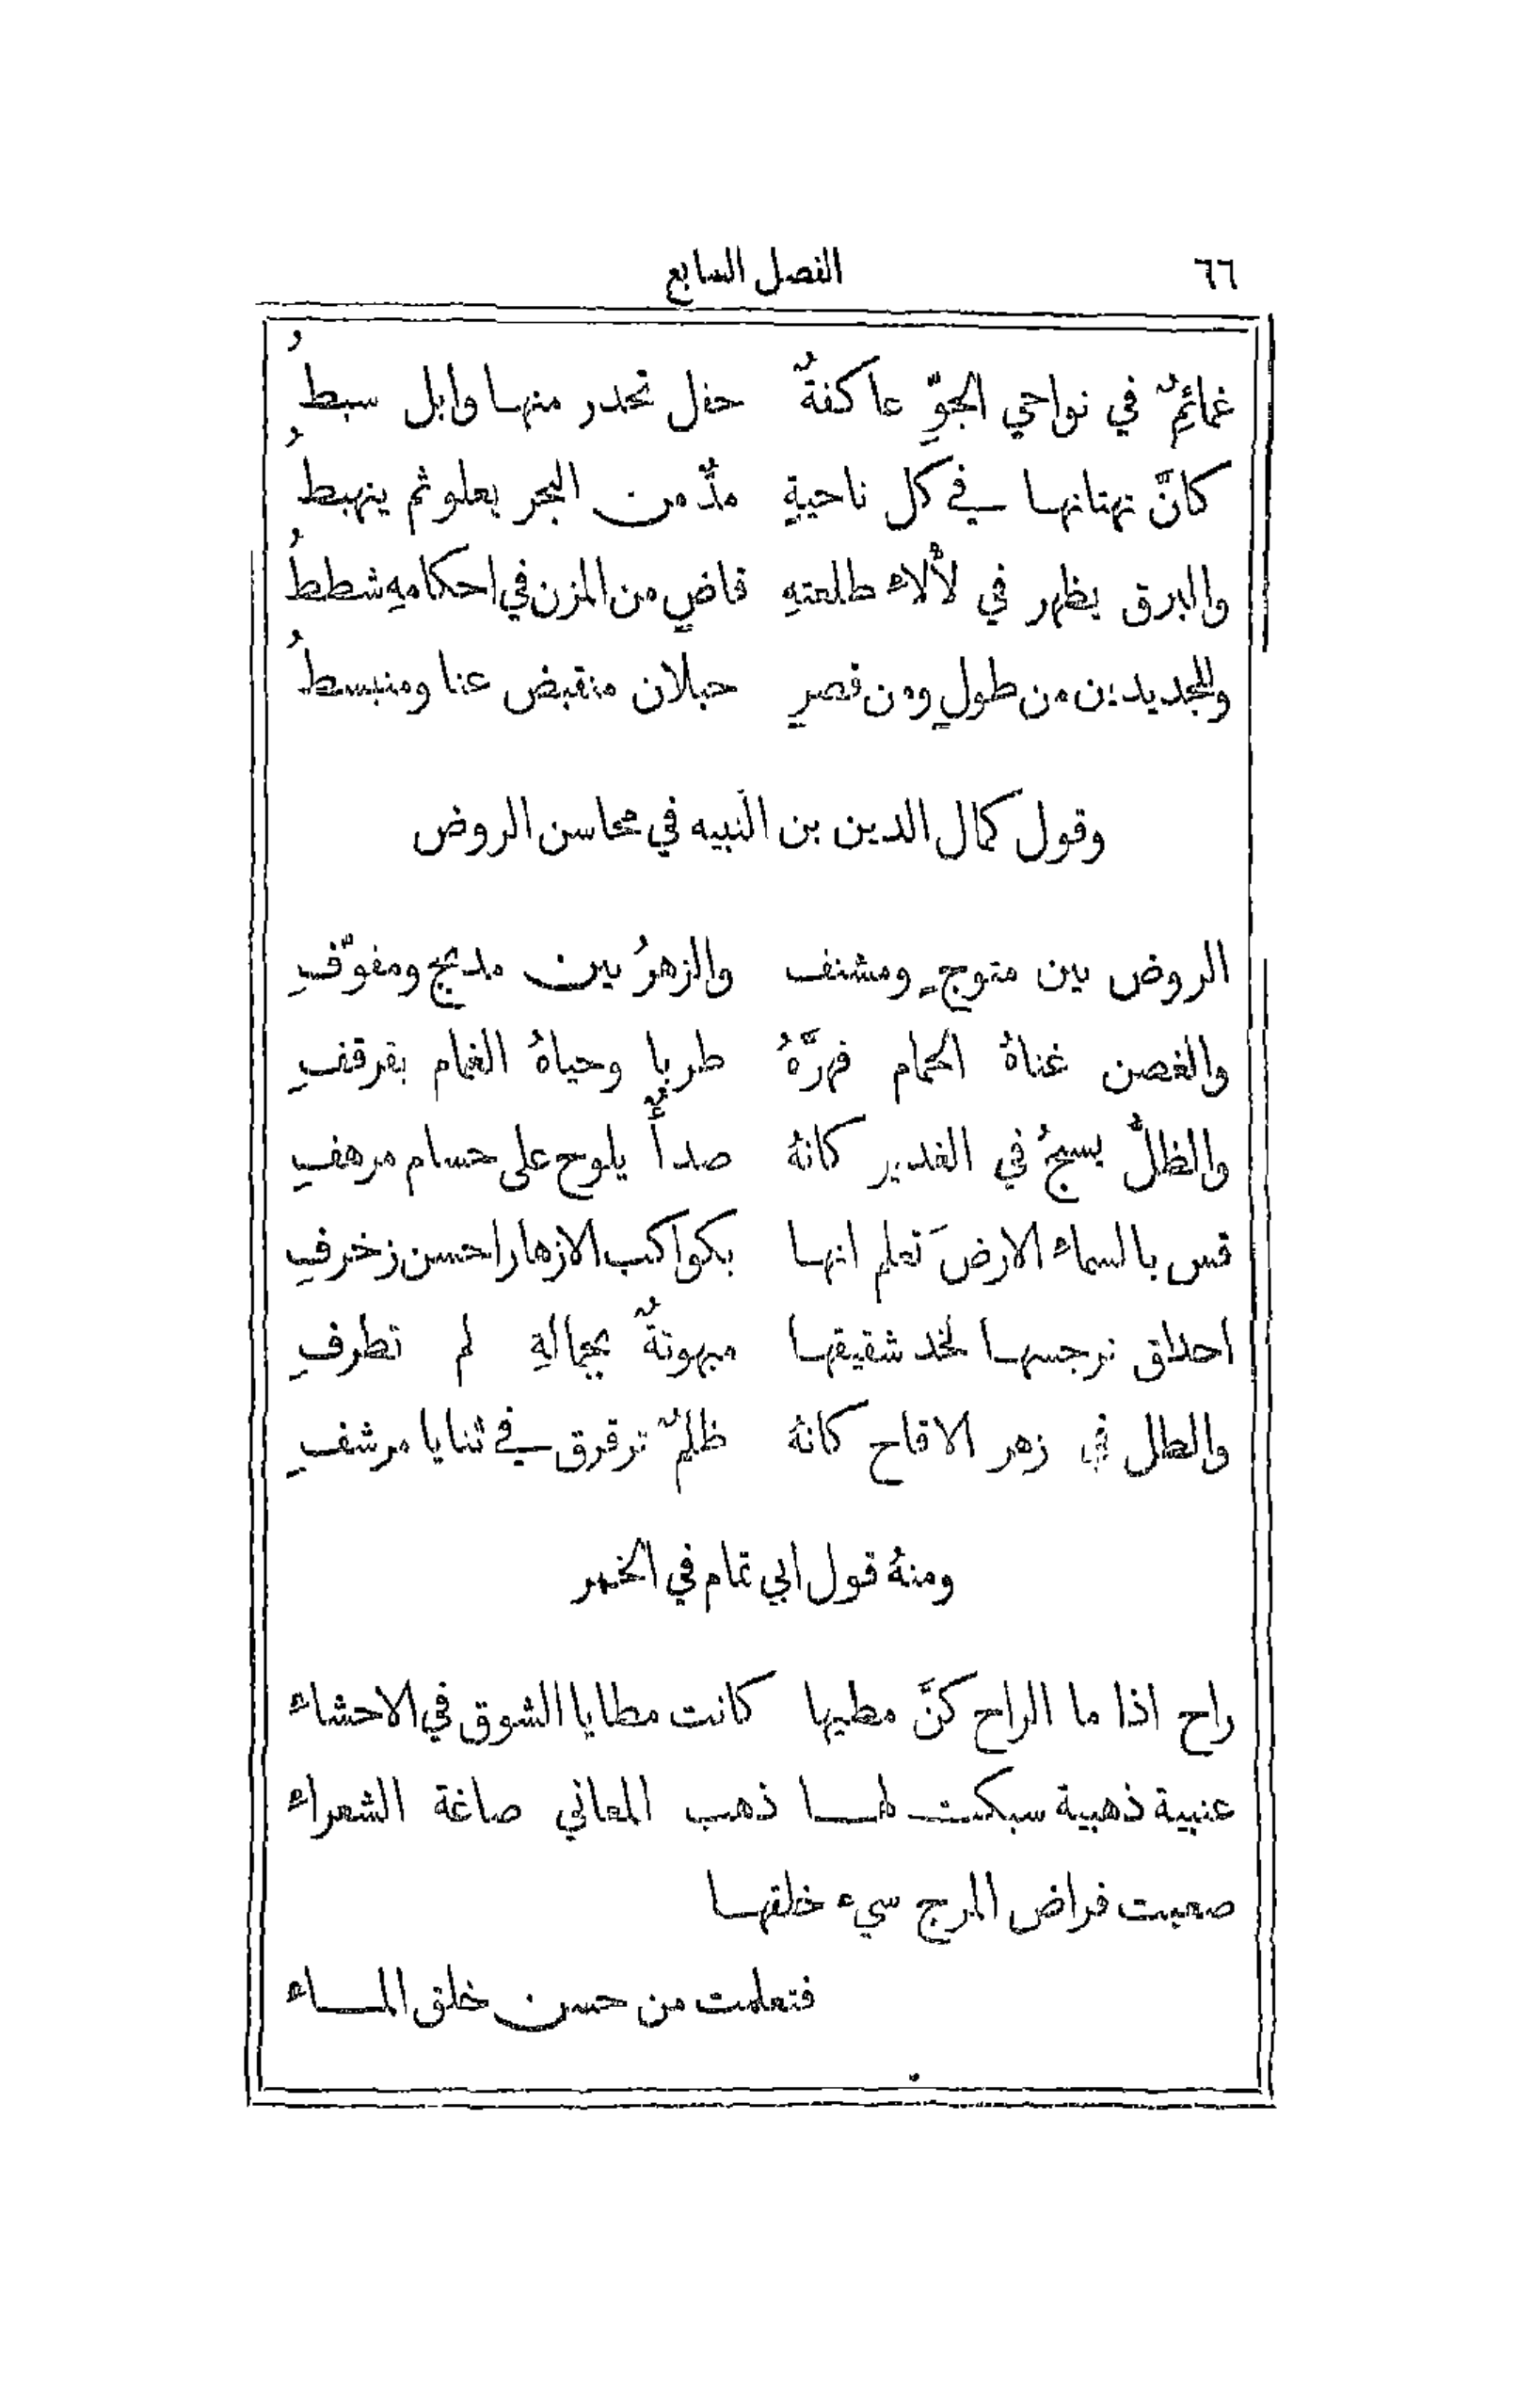 ٦٦ الفصل السابع
غمائمٌ في نواحي الجوِّ عاكفةٌ حفل تحدر منها وابل سبطُ
كانَّ تهتانها في كل ناحيةٍ مدٌّ من البحر يعلو ثم ينهبطُ
والبرق يظهر في لألاء طلعتهِ قاضٍ من المزن في احكامهِ شططُ
وللجديدين من طولٍ ومن قصرٍ حبلان منقبض عنا ومنبسطُ
وقول كمال الدين بن النبيه في محاسن الروض
الروض بين متوجٍ ومشنف والزهرُ بين مدبج ومفوّفِ
والغصن غناهُ الحمام فهزَّهُ طربا وحياهُ الغمام بقرقفِ
والظلُّ يسبحُ في الغدير كانهُ صدأٌ يلوح على حسام مرهفِ
قس بالسماء الارضَ تعلم انها بكواكب الازهار احسن زخرفِ
احداق نرجسها لخد شقيقها مبهوتةٌ بجمالهِ لم تطرفِ
والطل في زهر الاقاح كانهُ ظلمٌ ترقرق في ثنايا مرشفِ
ومنهُ قول ابي تمام في الخمر
راح اذا ما الراح كنَّ مطيها كانت مطايا الشوق في الاحشاء
عنبية ذهبية سبكت لها ذهب المعاني صاغة الشعراء
صعبت فراض المزج سيء خلقها
فتعلمت من حسن خلق الماء